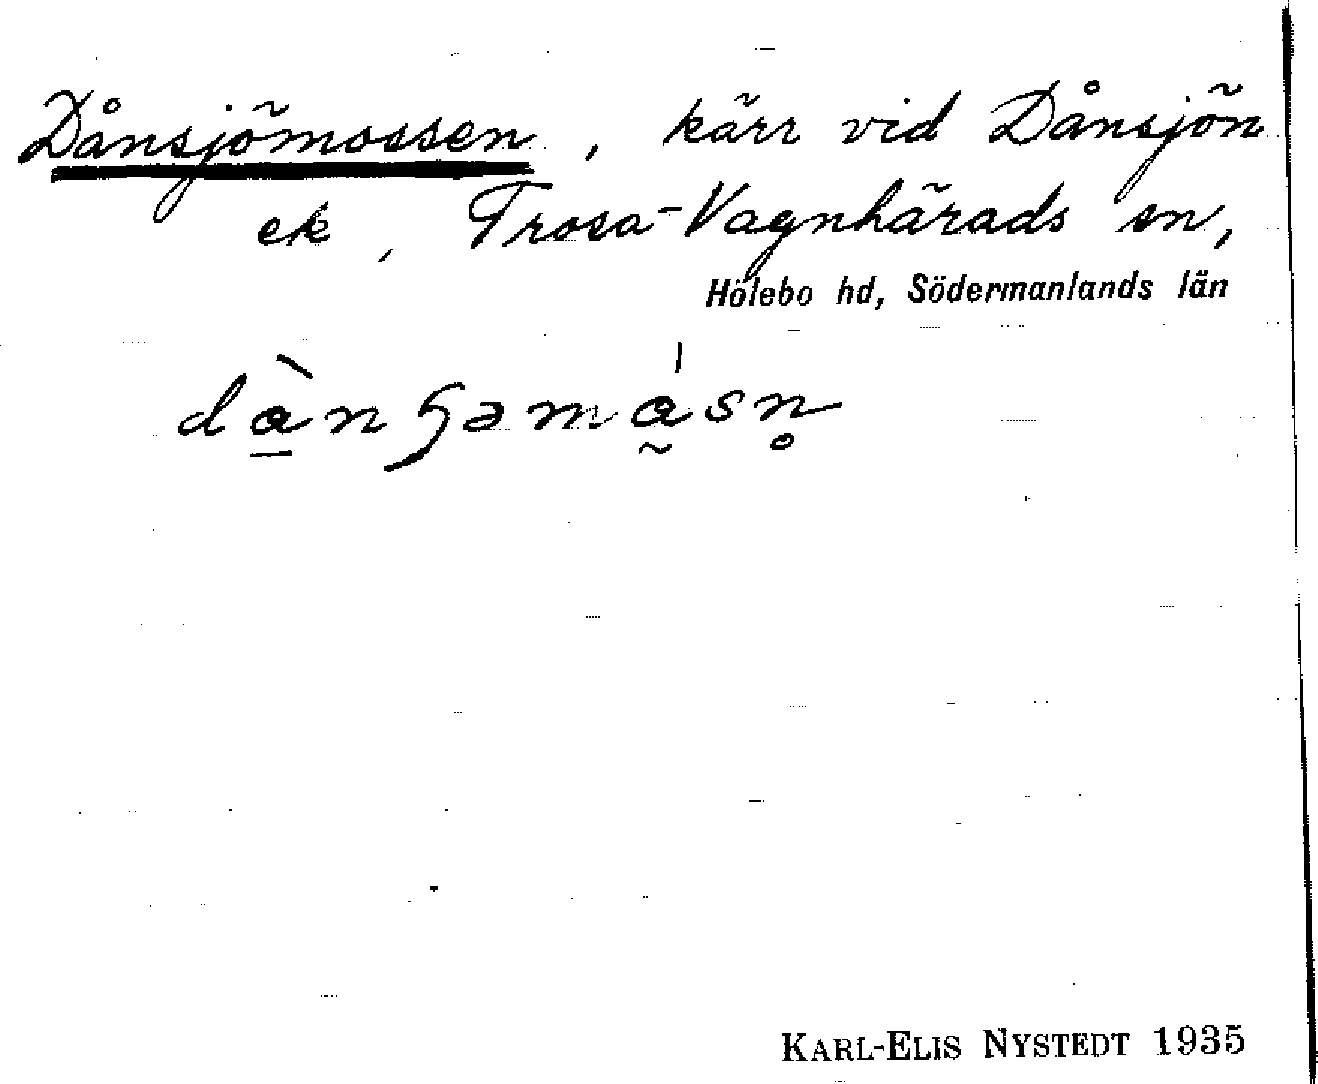 Dånsjömossen, kärr vid Dånsjön
ek, Trosa-Vagnhärads sn,
Hölebo hd, Södermanlands län
KARL-ELIS NYSTEDT 1935